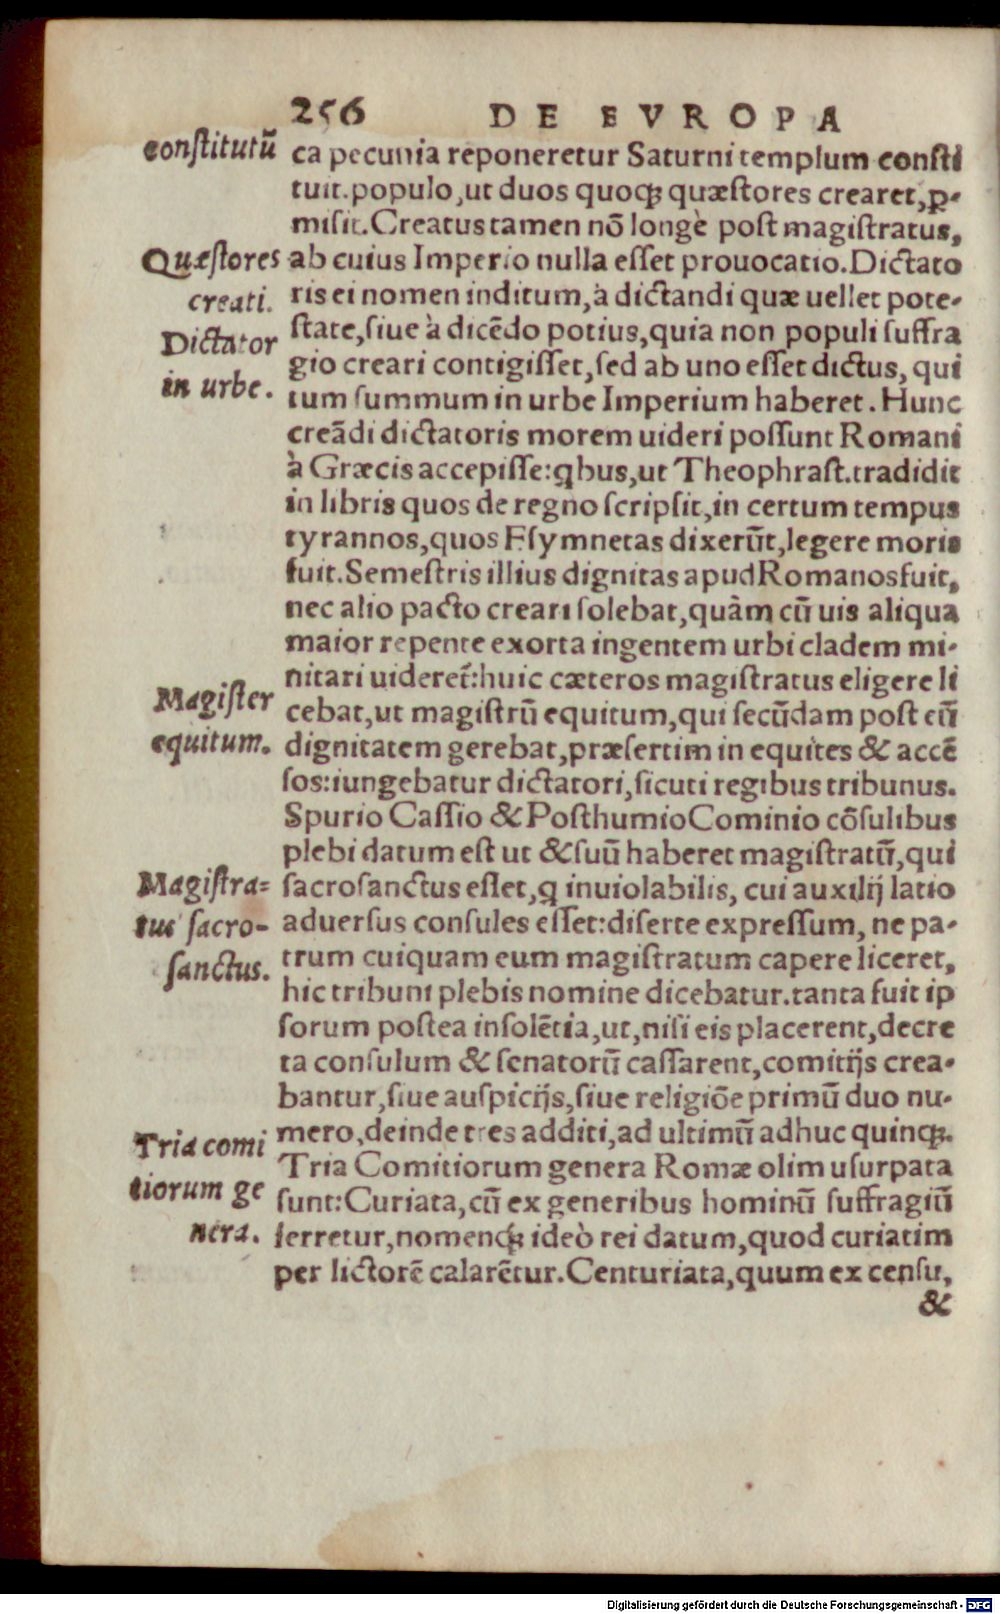 256 DE EVROPA
conſtitutū
ca pecunia reponeretur Saturni templum conſti
tuit.populo,ut duos quoqꝫ quæſtores crearet,ꝑ-
miſit.Creatus tamen nō longè poſt magiſtratus,
Quæſtores
ab cuius Imperio nulla eſſet prouocatio.Dictato
creati.
ris ei nomen inditum,à dictandi quæ uellet pote-
Dictator
ſtate,ſiue à dicēdo potius,quia non populi ſuffra
in urbe.
gio creari contigiſſet,ſed ab uno eſſet dictus, qui
tum ſummum in urbe Imperium haberet. Hunc
creādi dictatoris morem uideri poſſunt Romani
à Græcis accepiſſe:qbus,ut Theophraſt.tradidit
in libris quos de regno ſcripſit,in certum tempus
tyrannos,quos Eſymnetas dixerūt,legere moris
fuit.Semeſtris illius dignitas apud Romanos fuit,
nec alio pacto creari ſolebat,quàm cū uis aliqua
maior repente exorta ingentem urbi cladem mi-
nitari uideret̄:huic cæteros magiſtratus eligere li
Magiſter
cebat,ut magiſtrū equitum,qui ſecūdam poſt eū
equitum.
dignitatem gerebat,præſertim in equites & accē
ſos:iungebatur dictatori,ſicuti regibus tribunus.
Spurio Caſſio & Poſthumio Cominio cōſulibus
plebi datum eſt ut & ſuū haberet magiſtratū,qui
Magiſtra=
ſacroſanctus eſſet,q inuiolabilis, cui auxilij latio
tus ſacro-
aduerſus conſules eſſet:diſerte expreſſum, ne pa-
ſanctus.
trum cuiquam eum magiſtratum capere liceret,
hic tribuni plebis nomine dicebatur.tanta fuit ip
ſorum poſtea inſolētia,ut,niſi eis placerent,decre
ta conſulum & ſenatorū caſſarent,comitijs crea-
bantur,ſiue auſpicijs,ſiue religiōe primū duo nu-
mero,deinde tres additi,ad ultimū adhuc quinqꝫ.
Tria comi
Tria Comitiorum genera Romæ olim uſurpata
tiorum ge
ſunt:Curiata,cū ex generibus hominū ſuffragiū
nera.
ferretur,nomenqꝫ ideò rei datum,quod curiatim
per lictorē calarētur.Centuriata,quum ex cenſu,
&
Digitalisierung gefördert durch die Deutsche Forschungsgemeinschaft - DFG